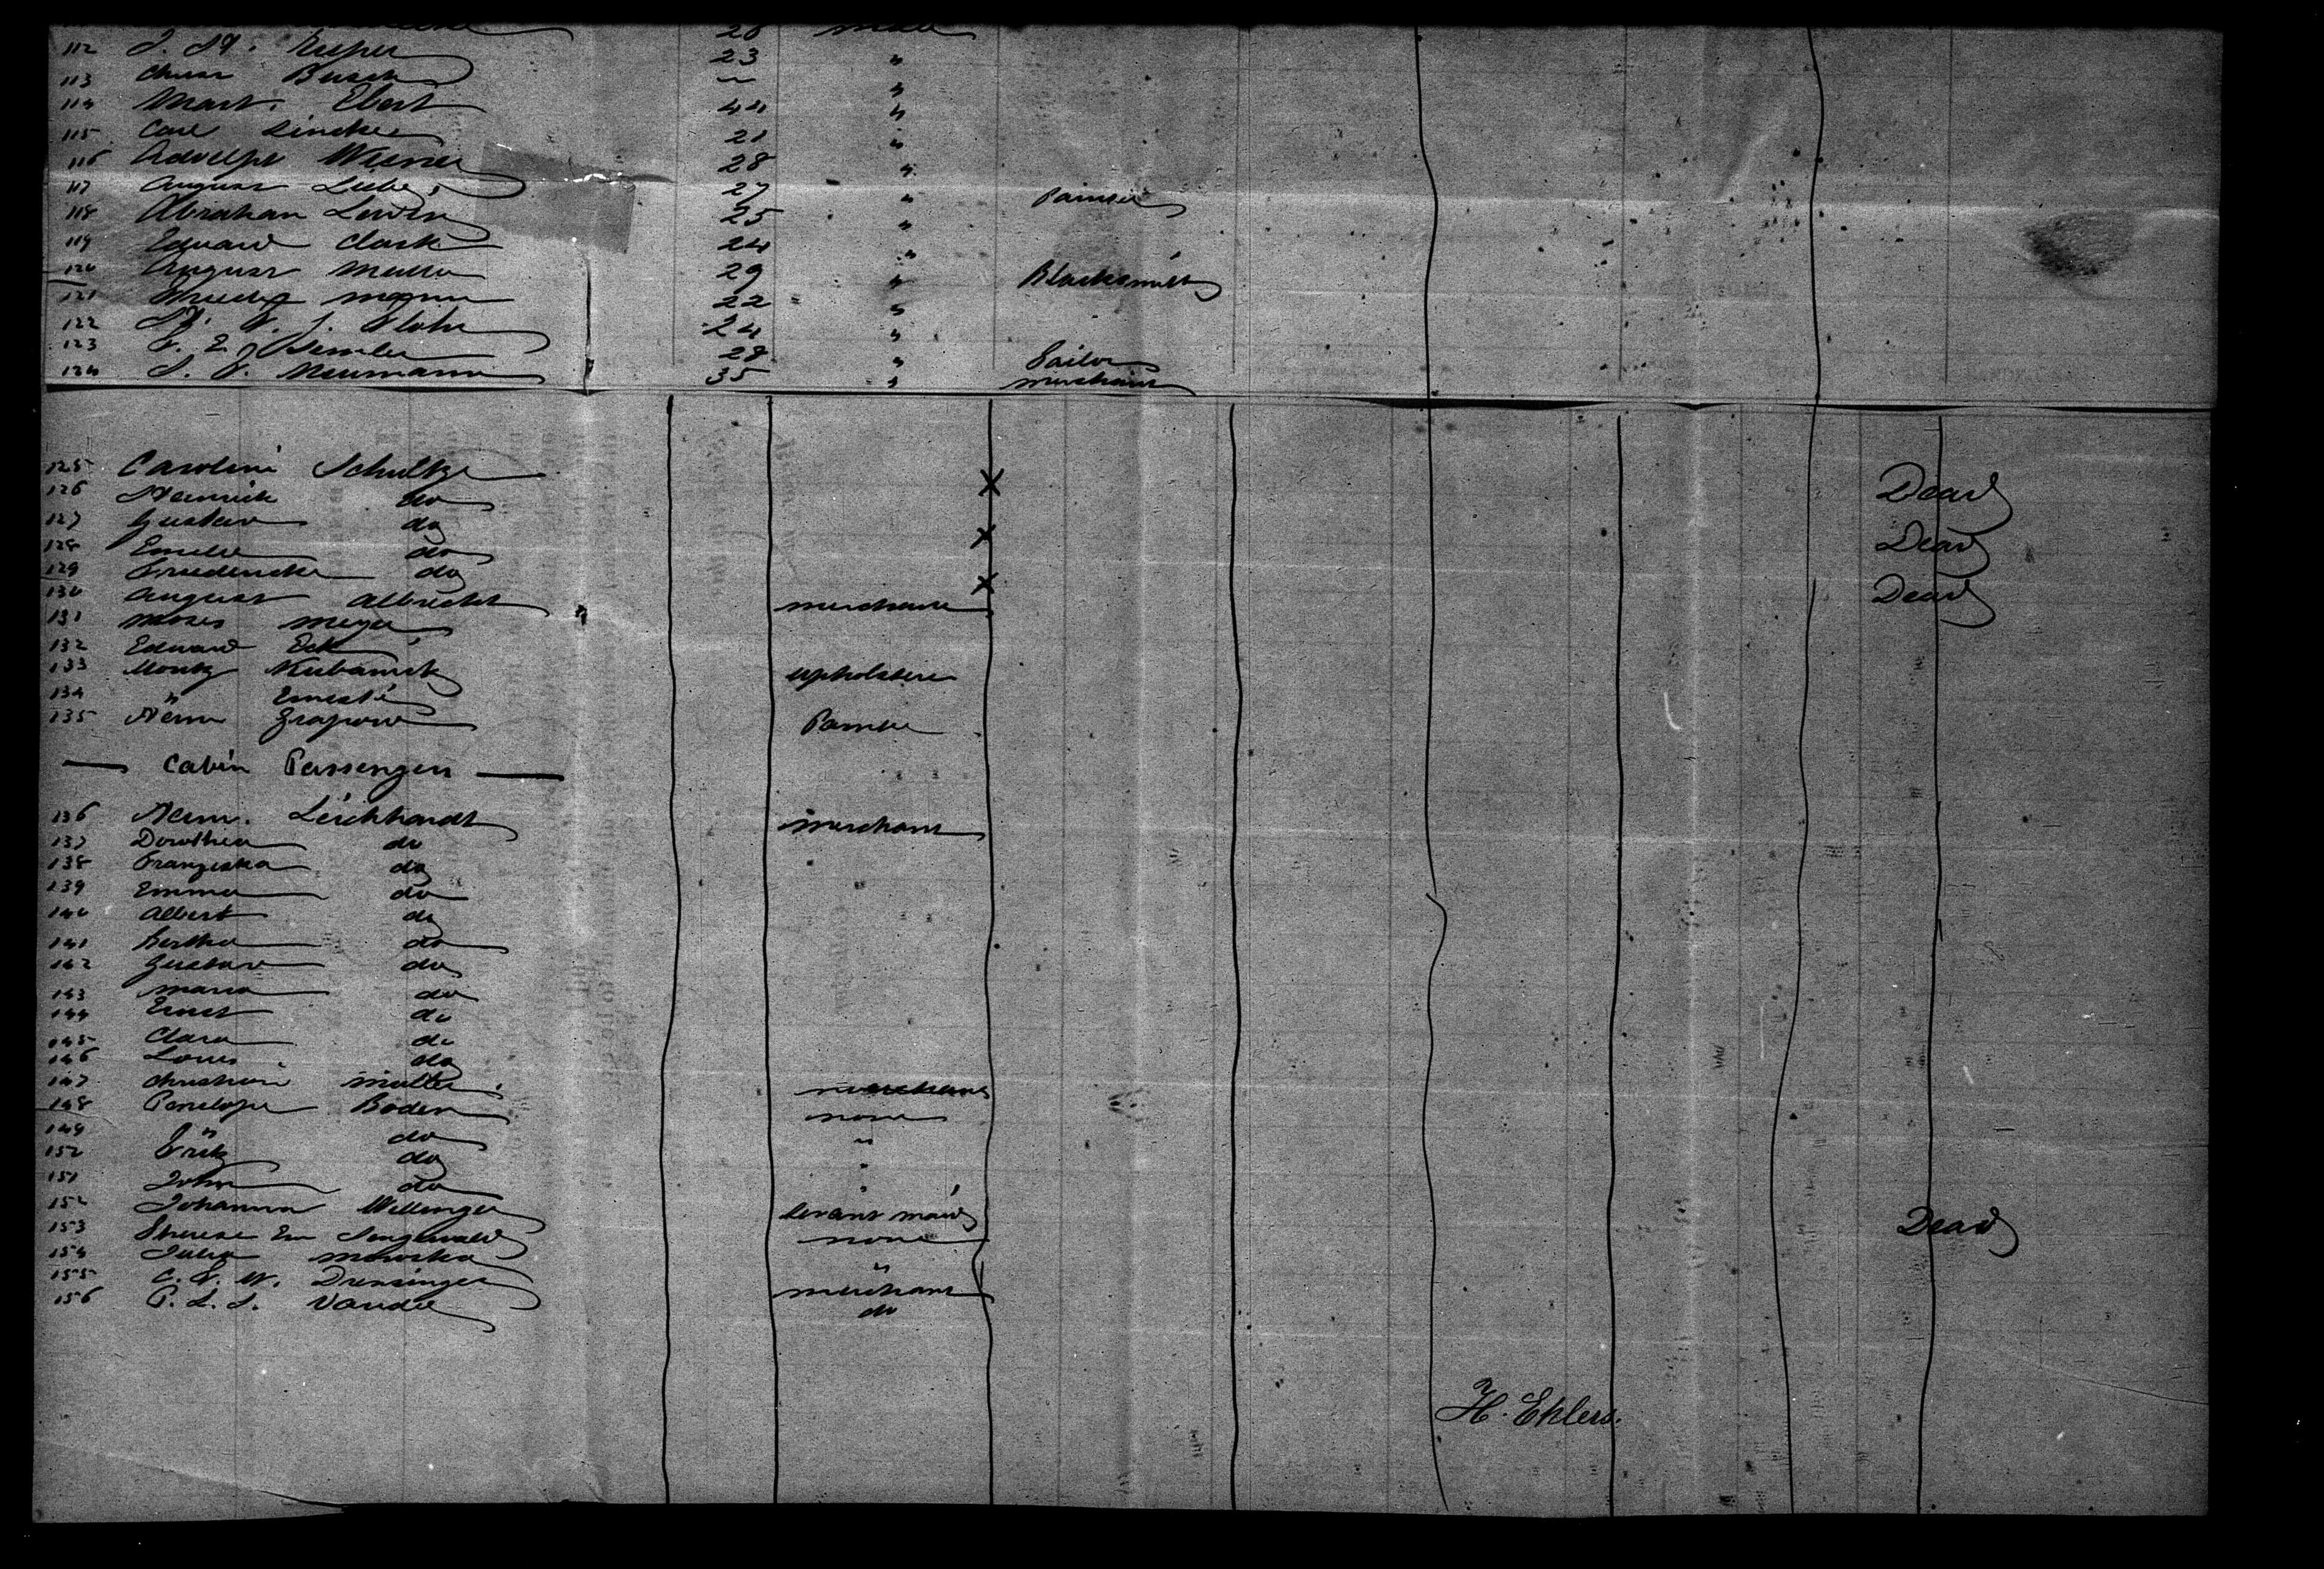 26 male
112 23 "
113 Busch ~ "
114 Mart. Ebert 44 "
115 Carl Lincke 21 "
116 Adolph Wiener 28 "
117 August Liebe 27 "
118 Abraham Lewin 25 " Painter
119 Eduard Clark 24 "
120 August Muller 29 " Blacksmith
121 22 "
122 24 "
123 28 " Tailor
124 Neumann 35 " merchant
125 Caroline Schultze
126 Heinrich do X Dead
127 Gustav do
128 Emilie do X Dead
129 Friedericke do
130 August Albrecht merchant X Dead
131 Moses Meyer
132 Edward Eck
133 Moritz upholsterer
134 " Ernesti
135 Herm Grapow Painter
— Cabin Passengers —
136 Herm. Leichhardt merchant
137 Dorothea do
138 Franziska do
139 Emma do
140 Albert do
141 Bertha do
142 Gustav do
143 Maria do
144 Ernst do
145 Clara do
146 Louis do
147 Christian Muller merchant
148 Penelope Boden none
149 " do "
152 Fritz do "
151 John do "
152 Johanna Wellenger servant maid Dead
153 Therese none
154 Julia "
155 Drensinger merchant
156 P. L. S. do
H. Ehlers.